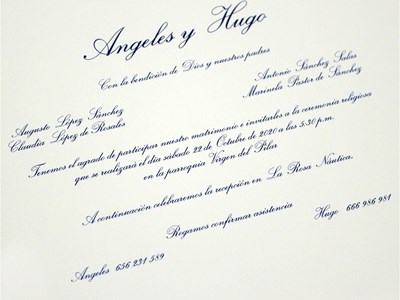 Angeles y Hugo
Con la bendición de Dios y nuestros padres
Augusto López Sánchez
Claudia López de Rosales
Antonio Sánchez Salas
Marinela Pastor de Sánchez
Tenemos el agrado de participar nuestro matrimonio e invitarles a la ceremonia religiosa
que se realizará el día sábado 22 de Octubre de 2020 a las 5:30 p.m.
en la parroquia Virgen del Pilar
A continuación celebraremos la recepción en La Rosa Náutica.
Rogamos confirmar asistencia
Angeles 656 231 589
Hugo 666 986 981